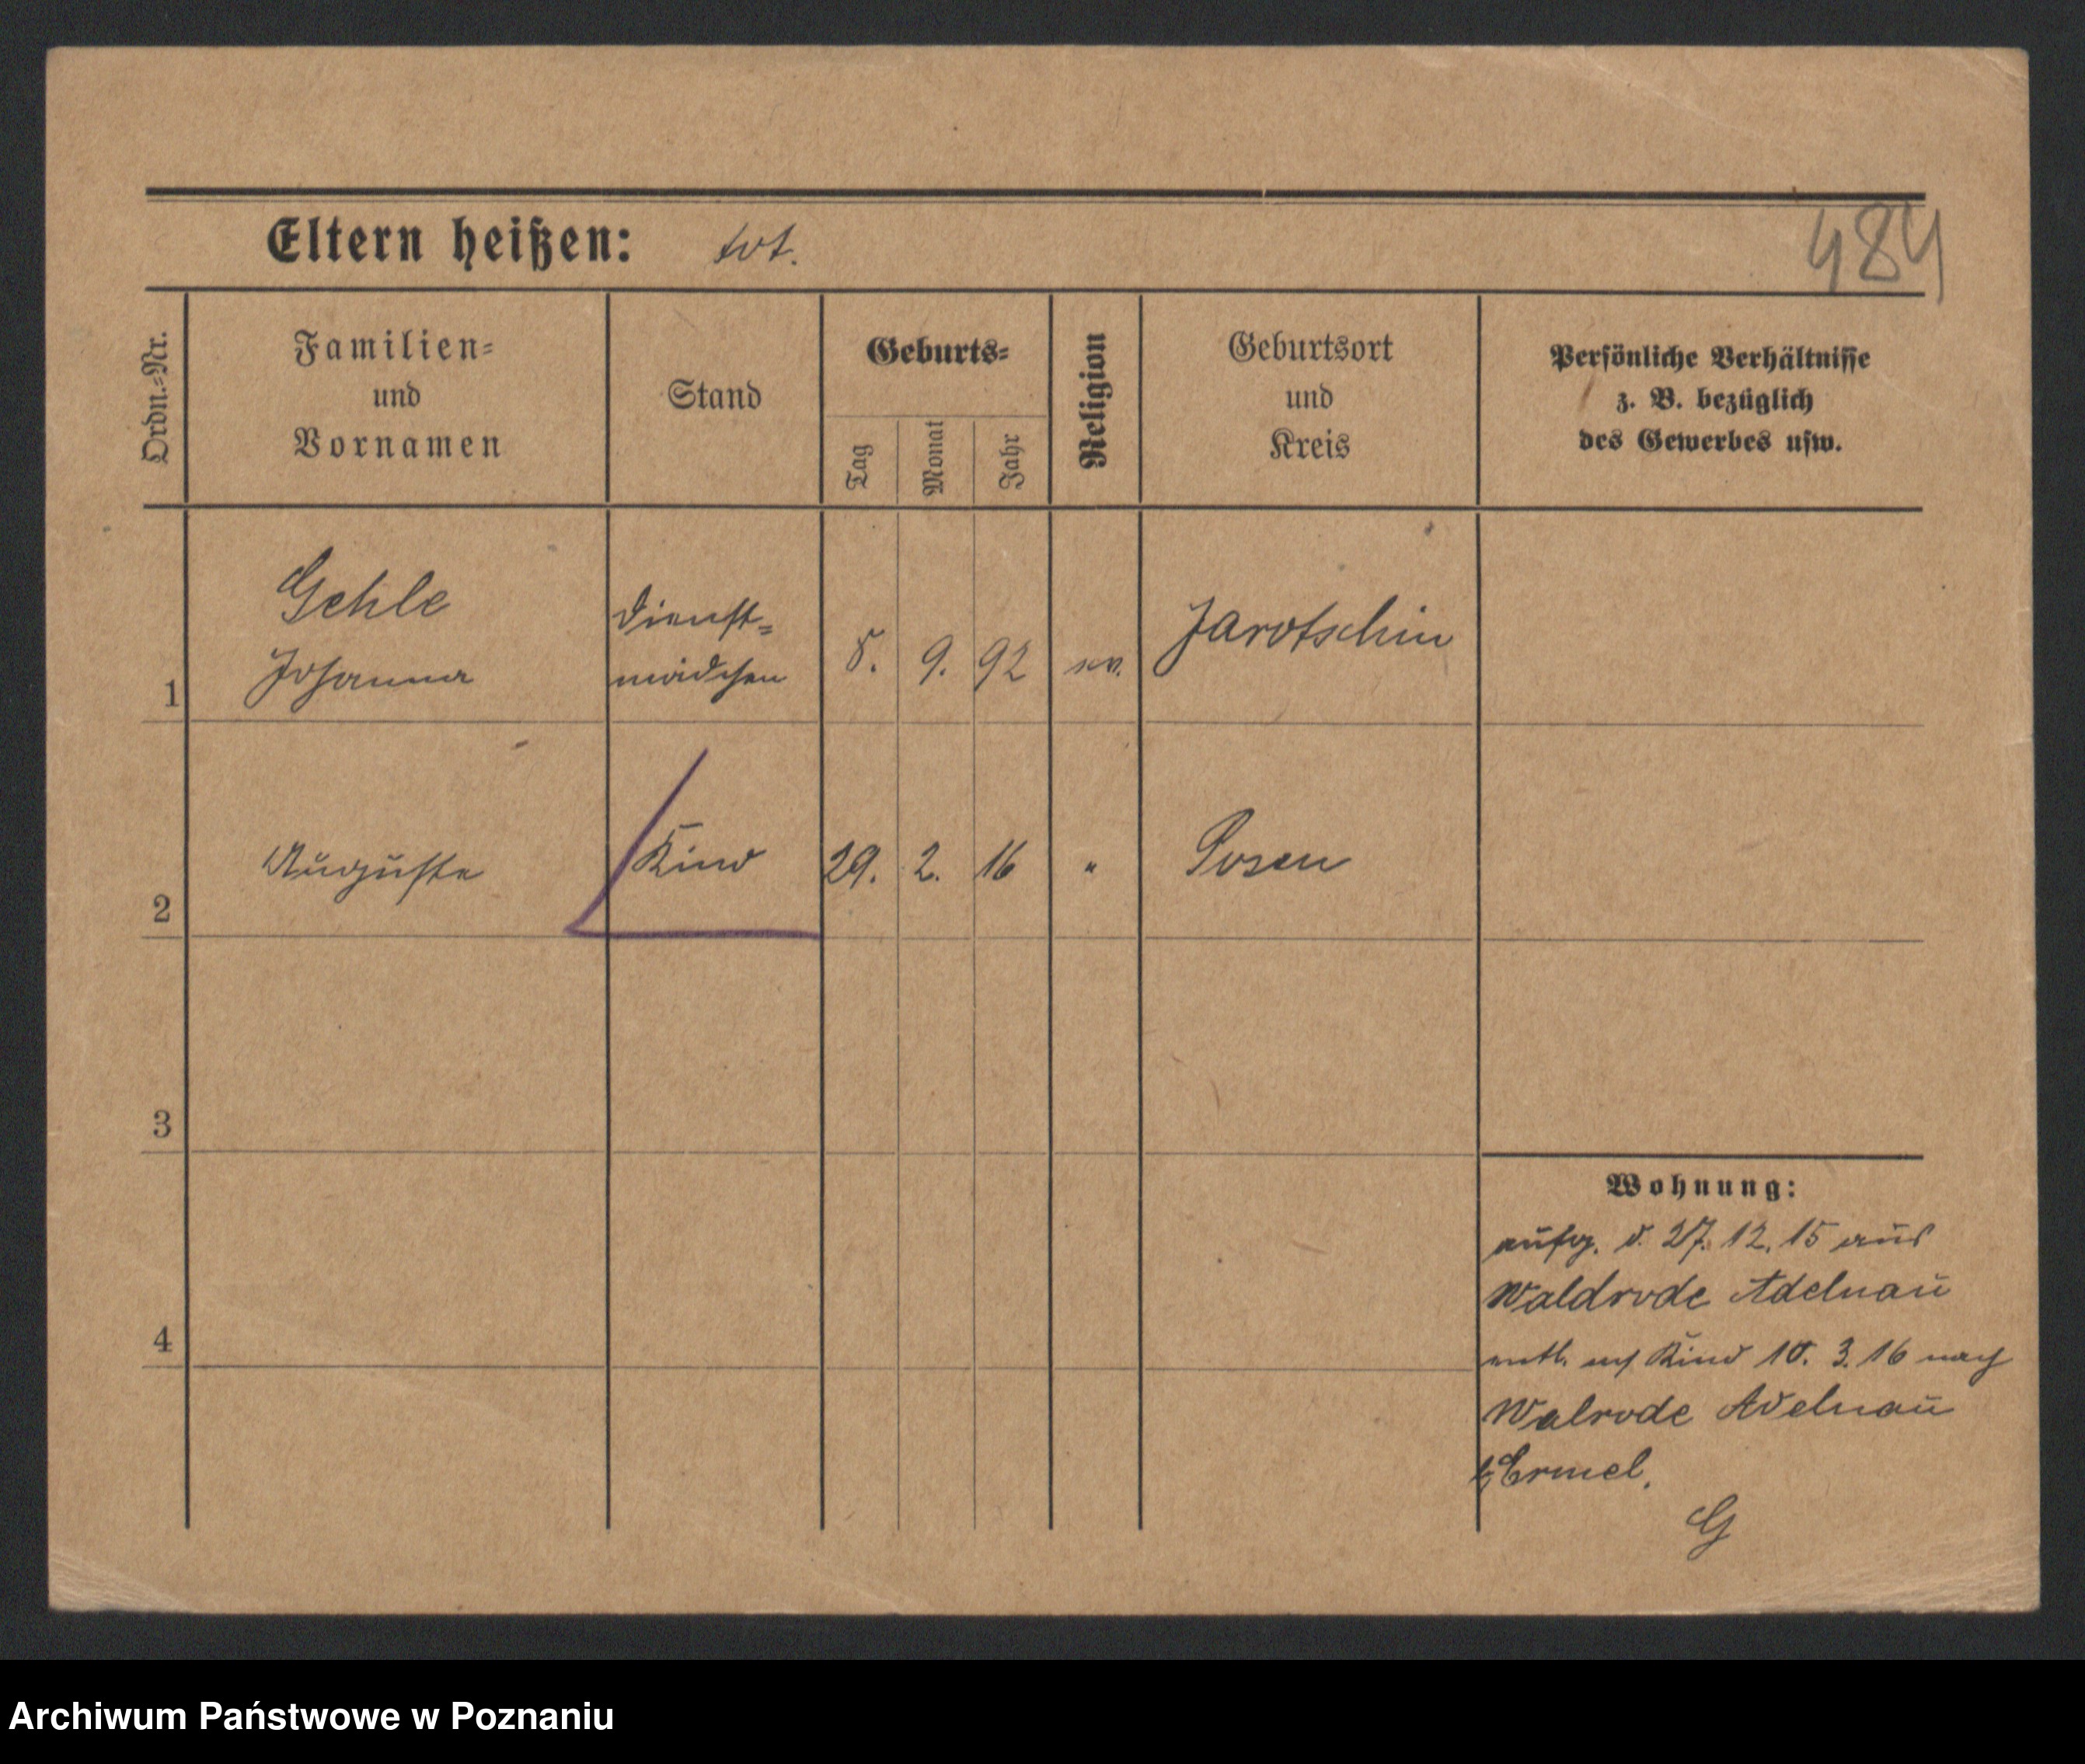 Eltern heißen: tot.
484
Ordn.-Nr.
Familien-
und
Vornamen
Stand
Geburts-
Tag
Monat
Jahr
Religion
Geburtsort
und
Kreis
Persönliche Verhältnisse
z. B. bezüglich
des Gewerbes usw.
Gehle
Johanna
Dienst-
mädchen
1
8. 9. 92 ev. Jarotschin
2 Auguste Kind 29. 2. 16 " Posen
3
4
Wohnung:
aufg. d. 27. 12. 15 aus
Waldrode Adelnau
entl. Kind 10. 3. 16 nach
Walrode Adelnau
b. Ermel.
G
Archiwum Państwowe w Poznaniu